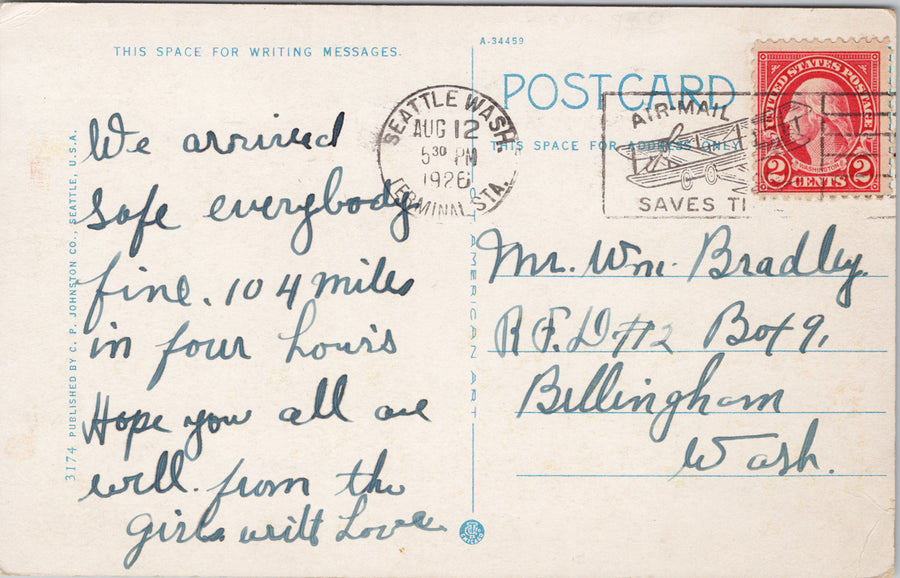 THIS SPACE FOR WRITING MESSAGES.
We arrived
safe everybody
fine. 104 miles
in four hours
Hope you all are
well. from the
girls with Love
3174 PUBLISHED BY C. P. JOHNSTON CO., SEATTLE, U.S.A.
A-34459
POST CARD
THIS SPACE FOR ADDRESS ONLY
SEATTLE WASH.
AUG 12
5 30 PM
1926
TERMINAL STA.
AIR MAIL
SAVES TI
UNITED STATES POSTAGE
WASHINGTON
2 CENTS 2
AMERICAN ART
Mr. Wm. Bradley.
R.F.D #2 Box 9,
Bellingham
Wash.